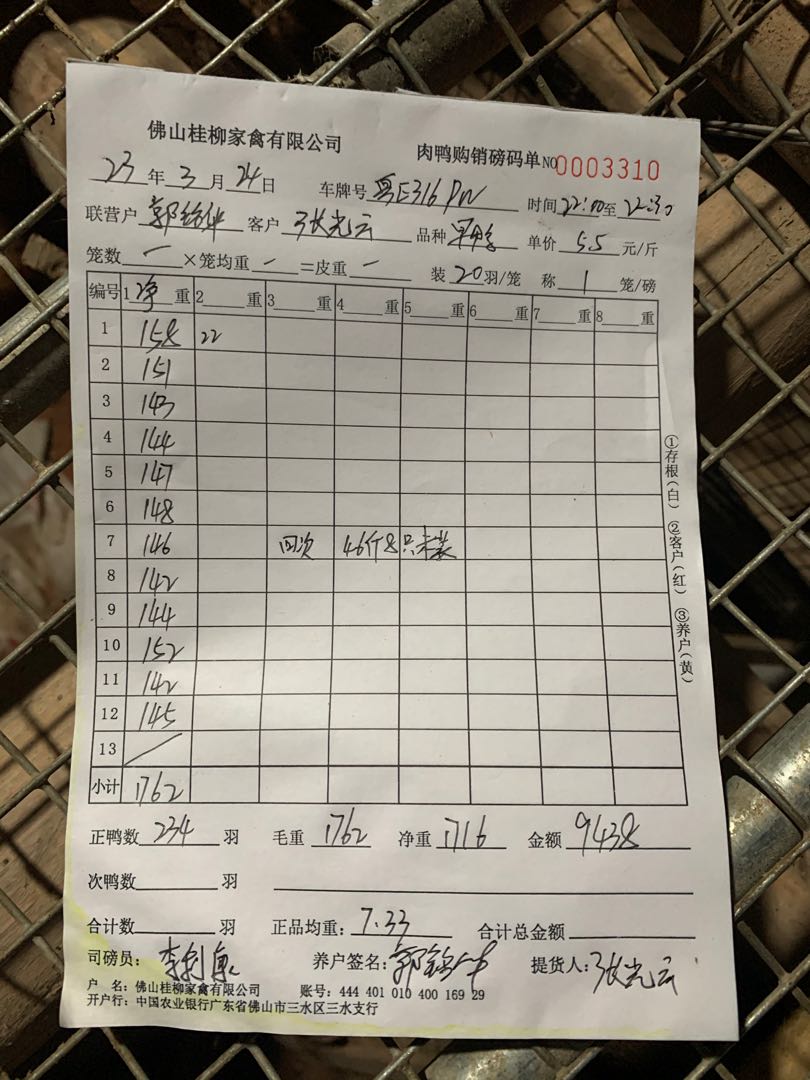 佛山桂柳家禽有限公司 肉鸭购销磅码单 NO 0003310
23 年 3 月 24 日 车牌号 粤E316PW 时间 22:00 至 22:30
联营户 客户 张光云 品种 单价 5.5 元/斤
笼数 一 ×笼均重 一 =皮重 一 装 20 羽/笼 称 1 笼/磅
编号 1 净 重 2 重 3 重 4 重 5 重 6 重 7 重 8 重
1 158 22
2 151
3 143
4 144
5 147
6 148
7 146 回次 46斤8只未装
8 142
9 144
10 152
11 142
12 145
13 /
小计 1762
①存根(白) ②客户(红) ③养户(黄)
正鸭数 234 羽 毛重 1762 净重 1716 金额 9438
次鸭数 羽
合计数 羽 正品均重: 7.33 合计总金额
司磅员: 养户签名: 提货人: 张光云
户 名: 佛山桂柳家禽有限公司 账号: 444 401 010 400 169 29
开户行: 中国农业银行广东省佛山市三水区三水支行